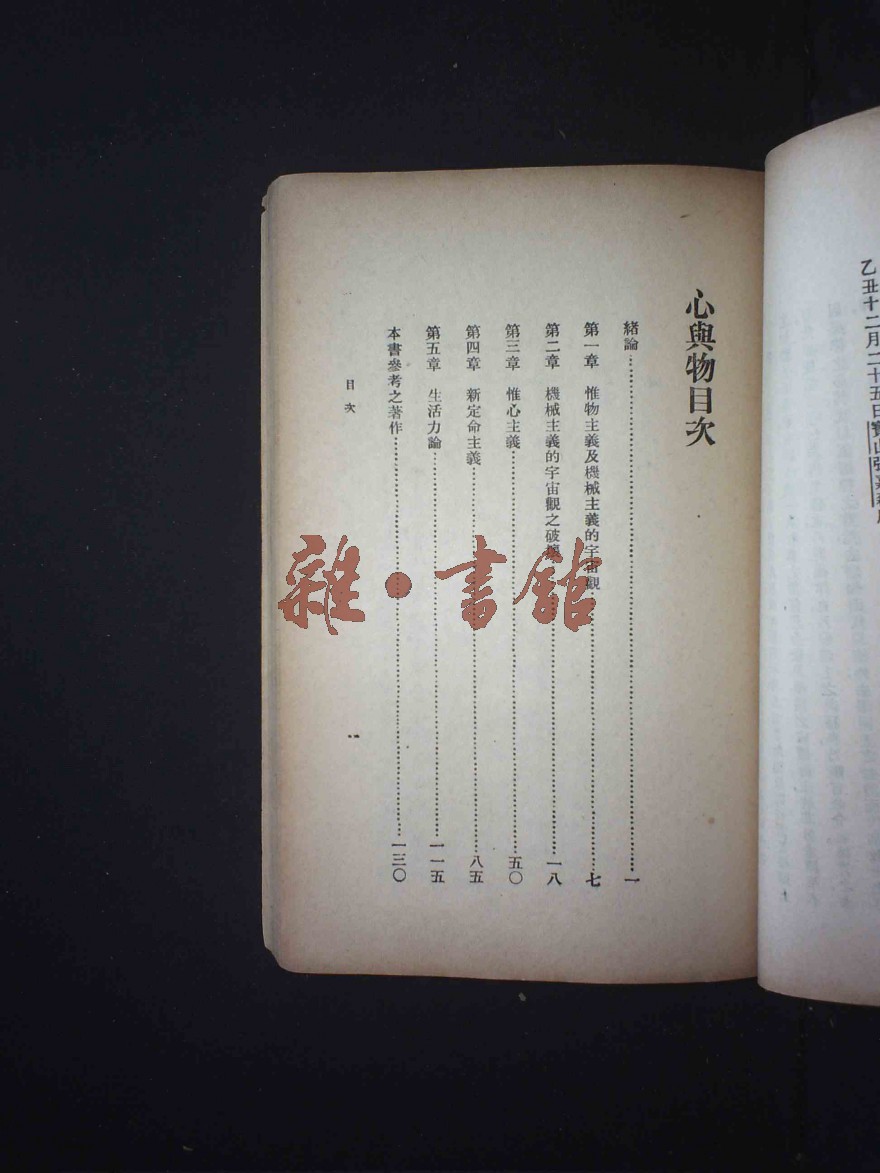 乙丑十二月二十五日寶山張嘉森序
心與物目次
緒論……一
第一章　惟物主義及機械主義的宇宙觀……七
第二章　機械主義的宇宙觀之破壞……一八
第三章　惟心主義……五〇
第四章　新定命主義……八五
第五章　生活力論……一一五
本書參考之著作……一三〇
目次
一
雜·書館